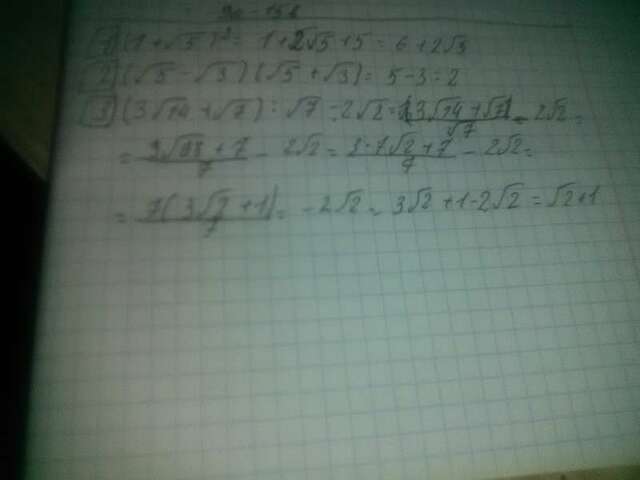 1) (1+√5)² = 1+2√5+5 = 6+2√5
2) (√5-√3)(√5+√3) = 5-3=2
3) (3√14+√7):√7-2√2 = (3√14+√7)/√7 - 2√2 =
= (3√98+7)/7 - 2√2 = (3·7√2+7)/7 - 2√2 =
= 7(3√2+1)/7 = -2√2 = 3√2+1-2√2 = √2+1